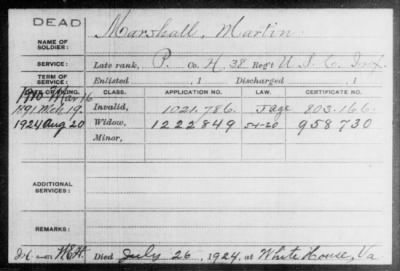 DEAD
NAME OF SOLDIER: Marshall, Martin
SERVICE: Late rank, P. Co. H, 38 Reg't U.S.C. Inf.
TERM OF SERVICE: Enlisted , 1 Discharged , 1
CLASS. APPLICATION NO. LAW. CERTIFICATE NO.
1891 Mch 19. Invalid, 1021.786. 803.166.
1924 Aug 20 Widow, 1222849 54-20 958730
Minor,
ADDITIONAL SERVICES:
REMARKS:
Died July 26, 1924, at White House, Va